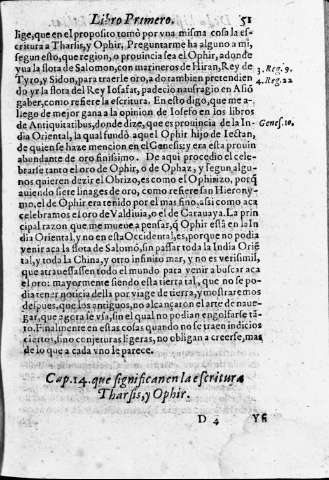 Libro Primero. 51
lige, que en el proposito tomò por vna misma cosa la es-
critura a Tharsis, y Ophir, Preguntarme ha alguno a mi,
segun esto, que region, o prouincia sea el Ophir, adonde
yua la flota de Salomon, con marineros de Hiran, Rey de
Tyro, y Sidon, para traerle oro, a do tambien pretendien
do yr la flota del Rey Iosafat, padecio naufragio en Asiõ
gaber, como refiere la escritura. En esto digo, que me a-
llego de mejor gana a la opinion de Iosefo en los libros
de Antiquitatibus, donde dize, que es prouincia de la In-
dia Oriental, la qual fundò aquel Ophir hijo de Iectan,
de quien se haze mencion en el Genesis: y era esta prouin
abundante de oro finissimo. De aqui procedio el cele-
brarse tanto el oro de Ophir, o de Ophaz, y segun algu-
nos quieren dezir el Obrizo, es como el Ophirizo, porq̃
auiendo siete linages de oro, como refiere san Hierony-
mo, el de Ophir era tenido por el mas fino, assi como aca
celebramos el oro de Valdiuia, o el de Carauaya. La prin
cipal razon que me mueue a pensar, q̃ Ophir està en la In
dia Oriental, y no en esta Occidental, es, porque no podia
venir aca la flota de Salomõ, sin passar toda la India Oriẽ
tal, y toda la China, y otro infinito mar, y no es verisimil,
que atrauessassen todo el mundo para venir a buscar aca
el oro: mayormente siendo esta tierra tal, que no se po-
dia tener noticia della por viage de tierra, y mostraremos
despues, que los antiguos, no alcançaron el arte de naue-
gar, que agora se vsa, sin el qual no podian engolfarse tã-
to. Finalmente en estas cosas quando no se traen indicios
ciertos, sino conjeturas ligeras, no obligan a creerse, mas
de lo que a cada vno le parece.
3. Reg. 9.
4. Reg. 22
Genes. 10.
Cap. 14. que significan en la escritura
Tharsis, y Ophir.
D 4 Ys